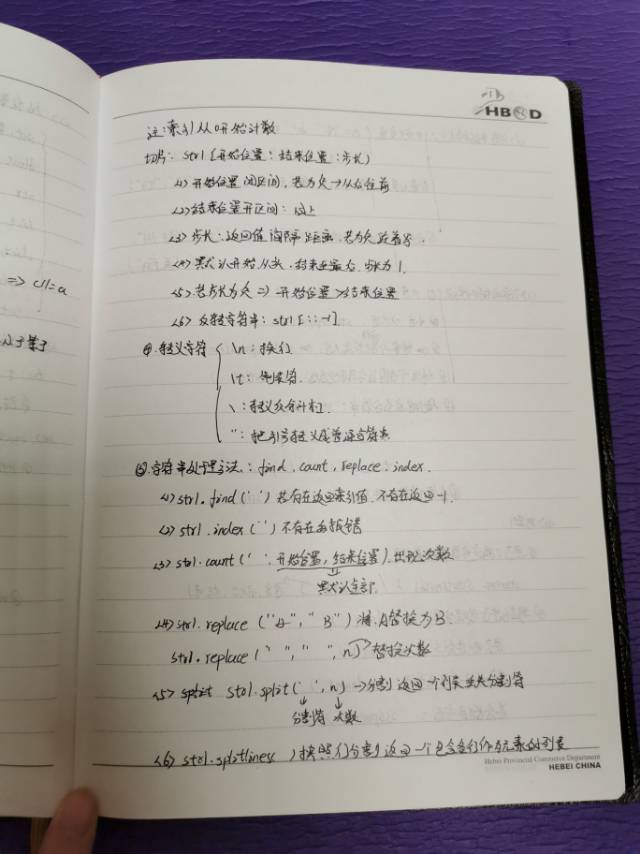 HBCD
注:索引从0开始计数
切片: str1[开始位置:结束位置:步长]
<1>开始位置闭区间,若为负→从右往前
<2>结束位置开区间:同上
<3>步长:返回值间隔距离,若为负
<4>默认开始从头,结束至最右,步长为1.
<5>若步长为负=>开始位置>结束位置
<6>反转字符串: str1[::-1]
=> c11=a
④.转义字符 \n:换行
\t:制表符.
\:转义反斜杠.
":把引号转义成普通符号
⑤.字符串处理方法: find. count, replace. index.
<1>str1.find(' ')若存在返回索引值.不存在返回-1.
<2>str1.index('')不存在会报错
<3>str1.count(' ',开始位置,结束位置).出现次数
默认全部.
<4>str1.replace("A","B")将A替换为B
str1.replace(" "," ",n)→替换次数
<5>split str1.split(' ',n)→分割返回一个列表丢失分割符
分割符 次数
<6>str1.splitlines 按照行分割返回一个包含各行作为元素的列表
Hebei Provincial Commerce Department
HEBEI CHINA